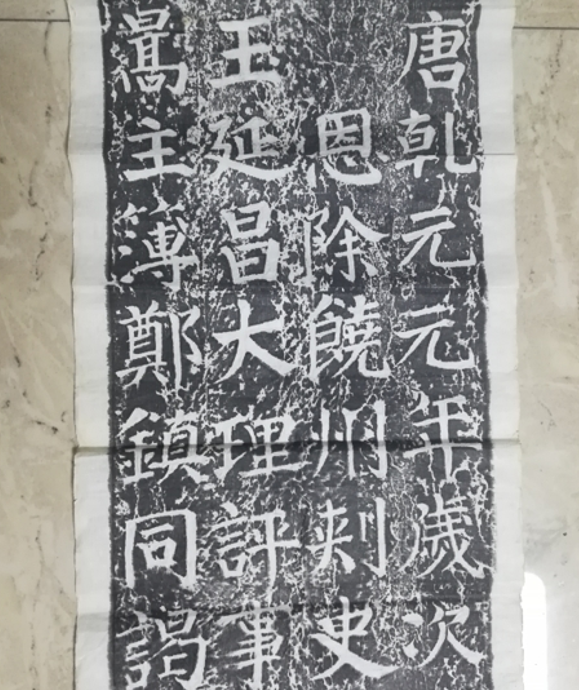 唐乾元元年歲次
恩除饒州刾史
王延昌大理評事
暠主簿鄭鎮同謁